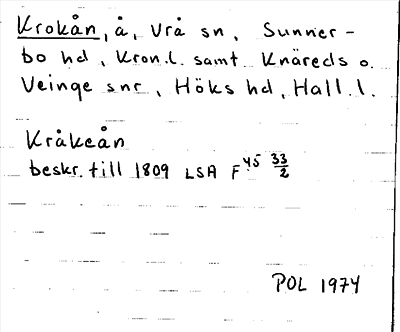 Krokån, å, Vrå sn, Sunner-
bo hd, Kron.l. samt Knäreds o.
Veinge snr, Höks hd, Hall.l.
Kråkeån
beskr. till 1809 LSA F 45 33/2
POL 1974